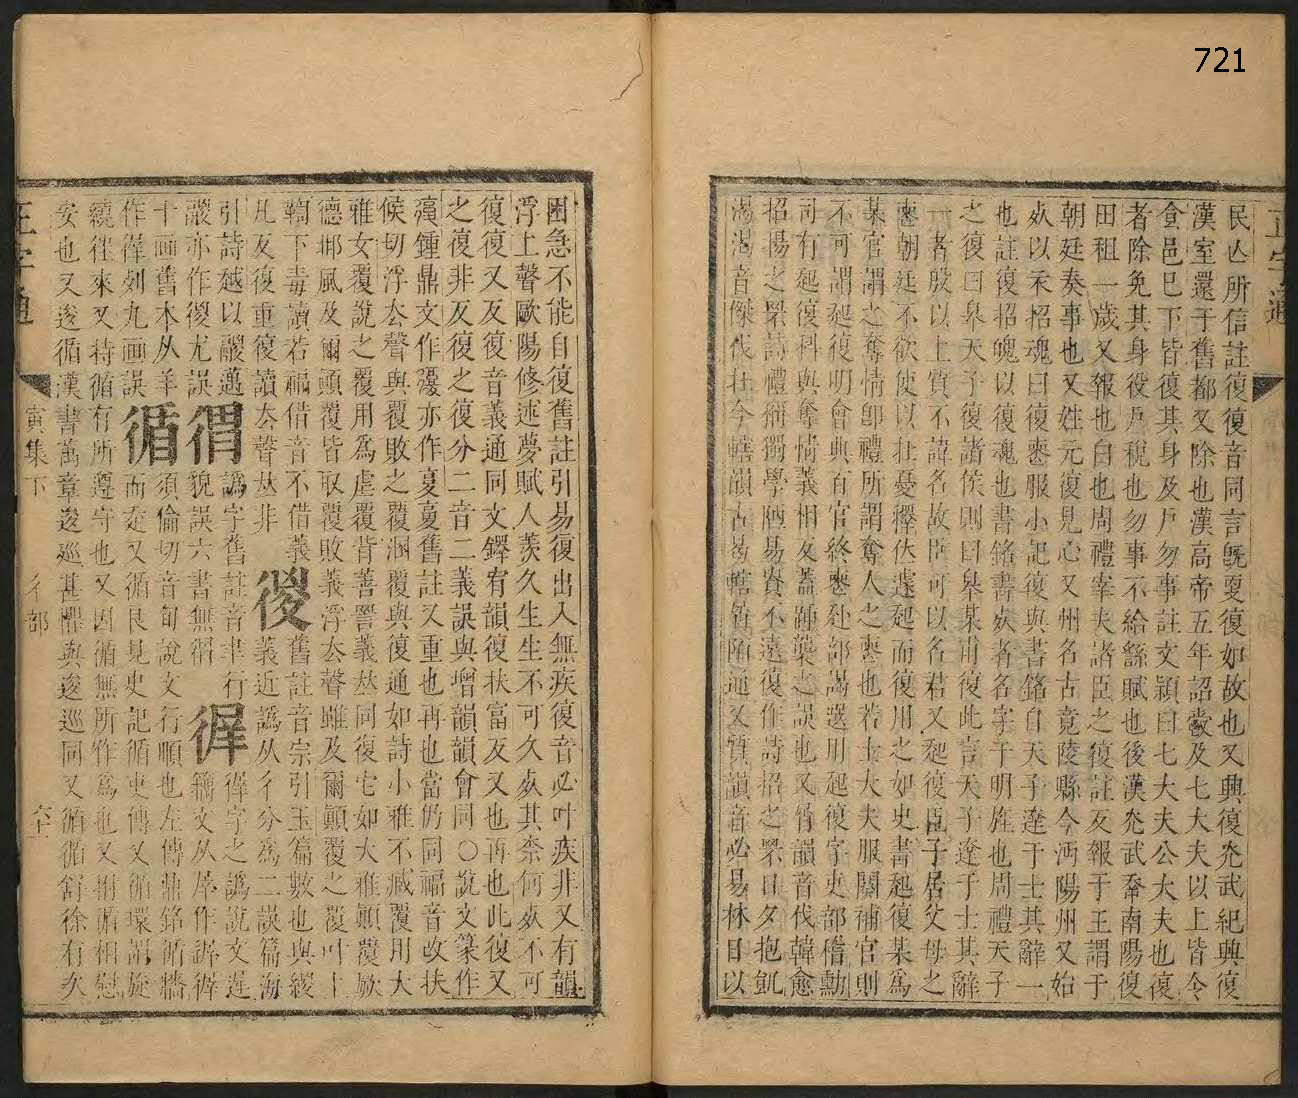 721
正字通
民亾所信註復復音同言旣更復如故也又興復光武紀興復
漢室還于舊都又除也漢高帝五年詔爵及七大夫以上皆令
食邑巳下皆復其身及戶勿事註文穎曰七大夫公大夫也復
者除免其身役戶稅也勿事不給繇賦也後漢光武舂南陽復
田租一歲又報也白也周禮宰夫諸臣之復註反報于王謂于
朝廷奏事也又姓元復見心又州名古竟陵縣今沔陽州又始
死以衣招魂曰復喪服小記復與書銘自天子達于士其辭一
也註復招魄以復魂也書銘書死者名字于明旌也周禮天子
之復曰皋天子復諸侯則曰皋某甫復此言天子達于士其辭
一者殷以上質不諱名故臣可以名君又起復臣子居父母之
喪朝廷不欲使以壯憂釋仕遽起而復用之如史書起復某爲
某官謂之奪情卽禮所謂奪人之喪也若士大夫服闋補官則
不可謂起復明會典百官終喪赴部謁選用起復字吏部稽勳
司有起復科與奪情義相反蓋踵襲之誤也又質韻音伐韓愈
招揚之罘詩禮稱獨學陋易貴不遠復作詩招之罘日夕抱飢
渴渴音傑伐壯今轄韻古曷轄質陌通又質韻音必易林日以
困急不能自復舊註引易復出入無疾復音必叶疾非又有韻
浮上聲歐陽修述夢賦人羨久生生不可久死其柰何死不可
復復又反復音義通同文鐸宥韻復扶富反又也再也此復又
之復非反復之復分二音二義誤與增韻韻會同○說文篆作
鍾鼎文作亦作夏舊註又重也再也當仍同福音改扶
候切浮去聲與覆敗之覆溷覆與復通如詩小雅不臧覆用大
雅女覆說之覆用爲虐覆背善詈義𠀤同復它如大雅顚覆厥
德邶風及爾顚覆皆取覆敗義浮去聲雖及爾顚覆之覆叶上
鞫下毒讀若福借音不借義
凡反復重復讀去聲𠀤非 舊註音宗引玉篇數也與緵
義近譌从彳分爲二誤篇海
引詩越以鬷邁
鬷亦作尤誤 徟 譌字舊註音聿行
貌誤六書無 徲 籒文从屖作
徲字之譌說文遲
十画舊本从羊
作徲列九画誤 循 須倫切音旬說文行順也左傳鼎銘循牆
而走又循良見史記循吏傳又循環謂旋
繞往來又持循有所遵守也又因循無所作爲也又拊循相慰
安也又逡循漢書萬章逡巡甚懼與逡巡同又循循舒徐有次
正字通
寅集下
彳部
六十